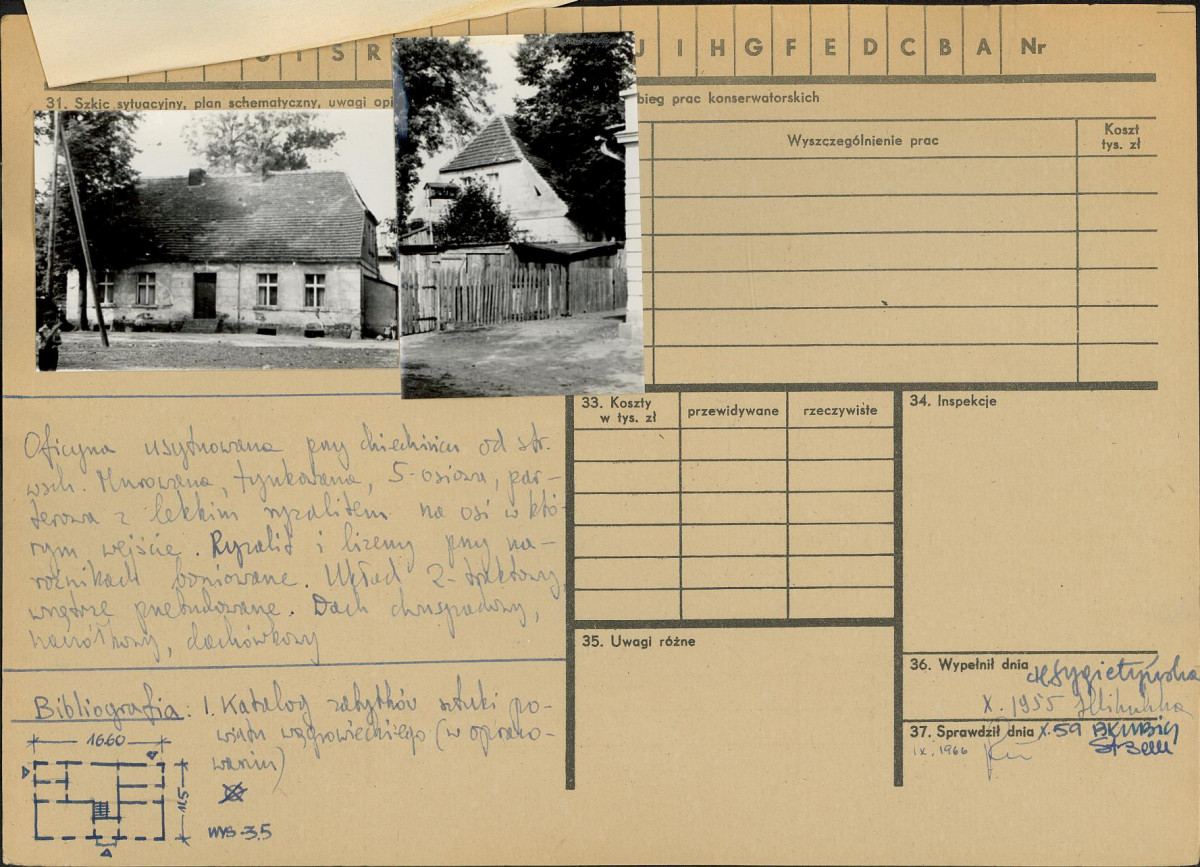 U T S R
J I H G F E D C B A Nr
31. Szkic sytuacyjny, plan schematyczny, uwagi opi
bieg prac konserwatorskich
Wyszczególnienie prac
Koszt
tys. zł
33. Koszty
w tys. zł
przewidywane
rzeczywiste
34. Inspekcje
Oficyna usytuowana przy dziedzińcu od str.
wsch. Murowana, tynkowana, 5-osiowa, par-
terowa z lekkim ryzalitem na osi w któ-
rym wejście. Ryzalit i lizeny przy na-
rożnikach boniowane. Układ 2-traktowy,
wnętrze przebudowane. Dach dwuspadowy,
naczółkowy, dachówkowy
35. Uwagi różne
Bibliografia: 1. Katalog zabytków sztuki po-
wiatu wągrowieckiego (w opraco-
waniu)
1660
11,5
WYS-3.5
36. Wypełnił dnia
X. 1955
37. Sprawdził dnia X.59
IX. 1966